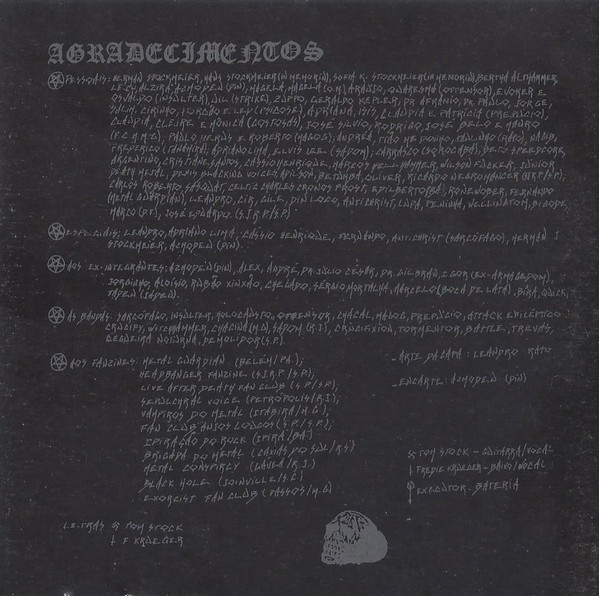 AGRADECIMENTOS
PESSOAIS: HERMAN STOCKMEIER, HANS STOCKMEIER (IN MEMORIN), SOFIA K. STOCKMEIER (IN MEMORIN), BERTHA ALTHAMMER,
ALZIRA, AZMODEU (PIN), ARAUJO, QUARESMA (OFFENSOR), EVOKER E
OSVALDO (INSULTER), GIL (STRIKE), ZÚPTO, GERALDO KEPLER, DR. AFRANIO, DR. PAULO, JORGE,
CIRINHO, ADRIANA, ISIS, CLAUDIA E PATRICIA (PREPUCIO),
CLAUDIA, CLEIRE E MÔNICA (GOSTOSA), JOSÉ SAVIO, RODRIGO, JOSÉ BELO E MAURO
PAULO, E ROBERTO (MAGOG), ANDREA, TIÃO MEDONHO, PAULINHO (RATO), NAUD,
FREDERICO ADRIANO LIMA, ELVIS LEE (SAPOM), CARRASCO (SOROCABA), BETO SPEEDCORE,
ARGENTINO, CRISTIANE SANTOS, CASSIO HENRIQUE, MARCOS HELLHAMMER, WILSON FUCKER, JUNIOR
DEATH METAL, DENIS BLACKING VOICES, ADILSON, BETUMBA, OLIVER, RICARDO NECROMANCER (S.J.R.P/S.P),
CARLOS ROBERTO SASQUAT, CELTIC CHARLES CRONOS FROST, EPILBERTO (BA), RONEWOBER, FERNANDO
(METAL GUARDIAN), LEANDRO, CIR, GILE, PIN LOCO, ANTICHRIST, LUPA, PENINHA, BIGODE,
MARCO (D.F), JOSÉ EDUARDO. (S.J.R.P/S.P)
ESPECIAIS: LEANDRO, ADRIANO LIMA, CASSIO HENRIQUE, FERNANDO, ANTICHRIST (SARCÓFAGO), HERMAN J.
STOCKMEIER, AZMODEU (PIN).
AOS EX-INTEGRANTES: AZMODEU (PIN), ALEX, ANDRE, DR. JULIO CESAR, DR. GILBRAN, EGOR (EX-ARMAGEDOM),
JORGINHO, ALOISIO, RUBÃO XINXÃO, CHEGADO, SERGIO MORTALHA, MARCELO (BOCA DE LATA), BIRA, QUICK,
AS BANDAS: SARCÓFAGO, INSULTER, HOLOCAUSTO, OFFENSOR, CHACAL, MAGOG, PREPUCIO, ATTACK EPILETICO,
CRUCIFY, WITCHHAMMER, CHACINA (M.G), SAPOM (R.J), CRUCIFIXION, TORMENTOR, BATTLE, TREVAS,
CEGUEIRA NOTURNA, DEMOLIDOR (S.P).
AOS FANZINES: METAL GUARDIAN (BELEM/PA.);
HEADBANGER FANZINE (S.J.R.P/S.P.);
LIVE AFTER DEATH FAN CLUB (S.P/S.P);
SEPULCHRAL VOICE (PETRÓPOLIS/R.J);
VAMPIROS DO METAL (ITABIRA/M.G);
FAN CLUB ANJOS LOUCOS (S.P/S.P);
IPIRAÇÃO DO ROCK (IPIRÁ/BA)
BRIGADA DO METAL (CAXIAS DO SUL/R.S)
METAL CONSPIRCY (R.J)
BLACK HOLE (JOINVILLE/S.C)
EXORCIST FAN CLUB (PASSOS/M.G)
-ARTE DA CAPA: LEANDRO RATO
-ENCARTE: AZMODEU (PIN)
TOM STOCK - GUITARRA/VOCAL
FREDIE KRUEGER - BAIXO/VOCAL
EXECUTOR - BATERIA
LETRAS TOM STOCK
F KRUEGER